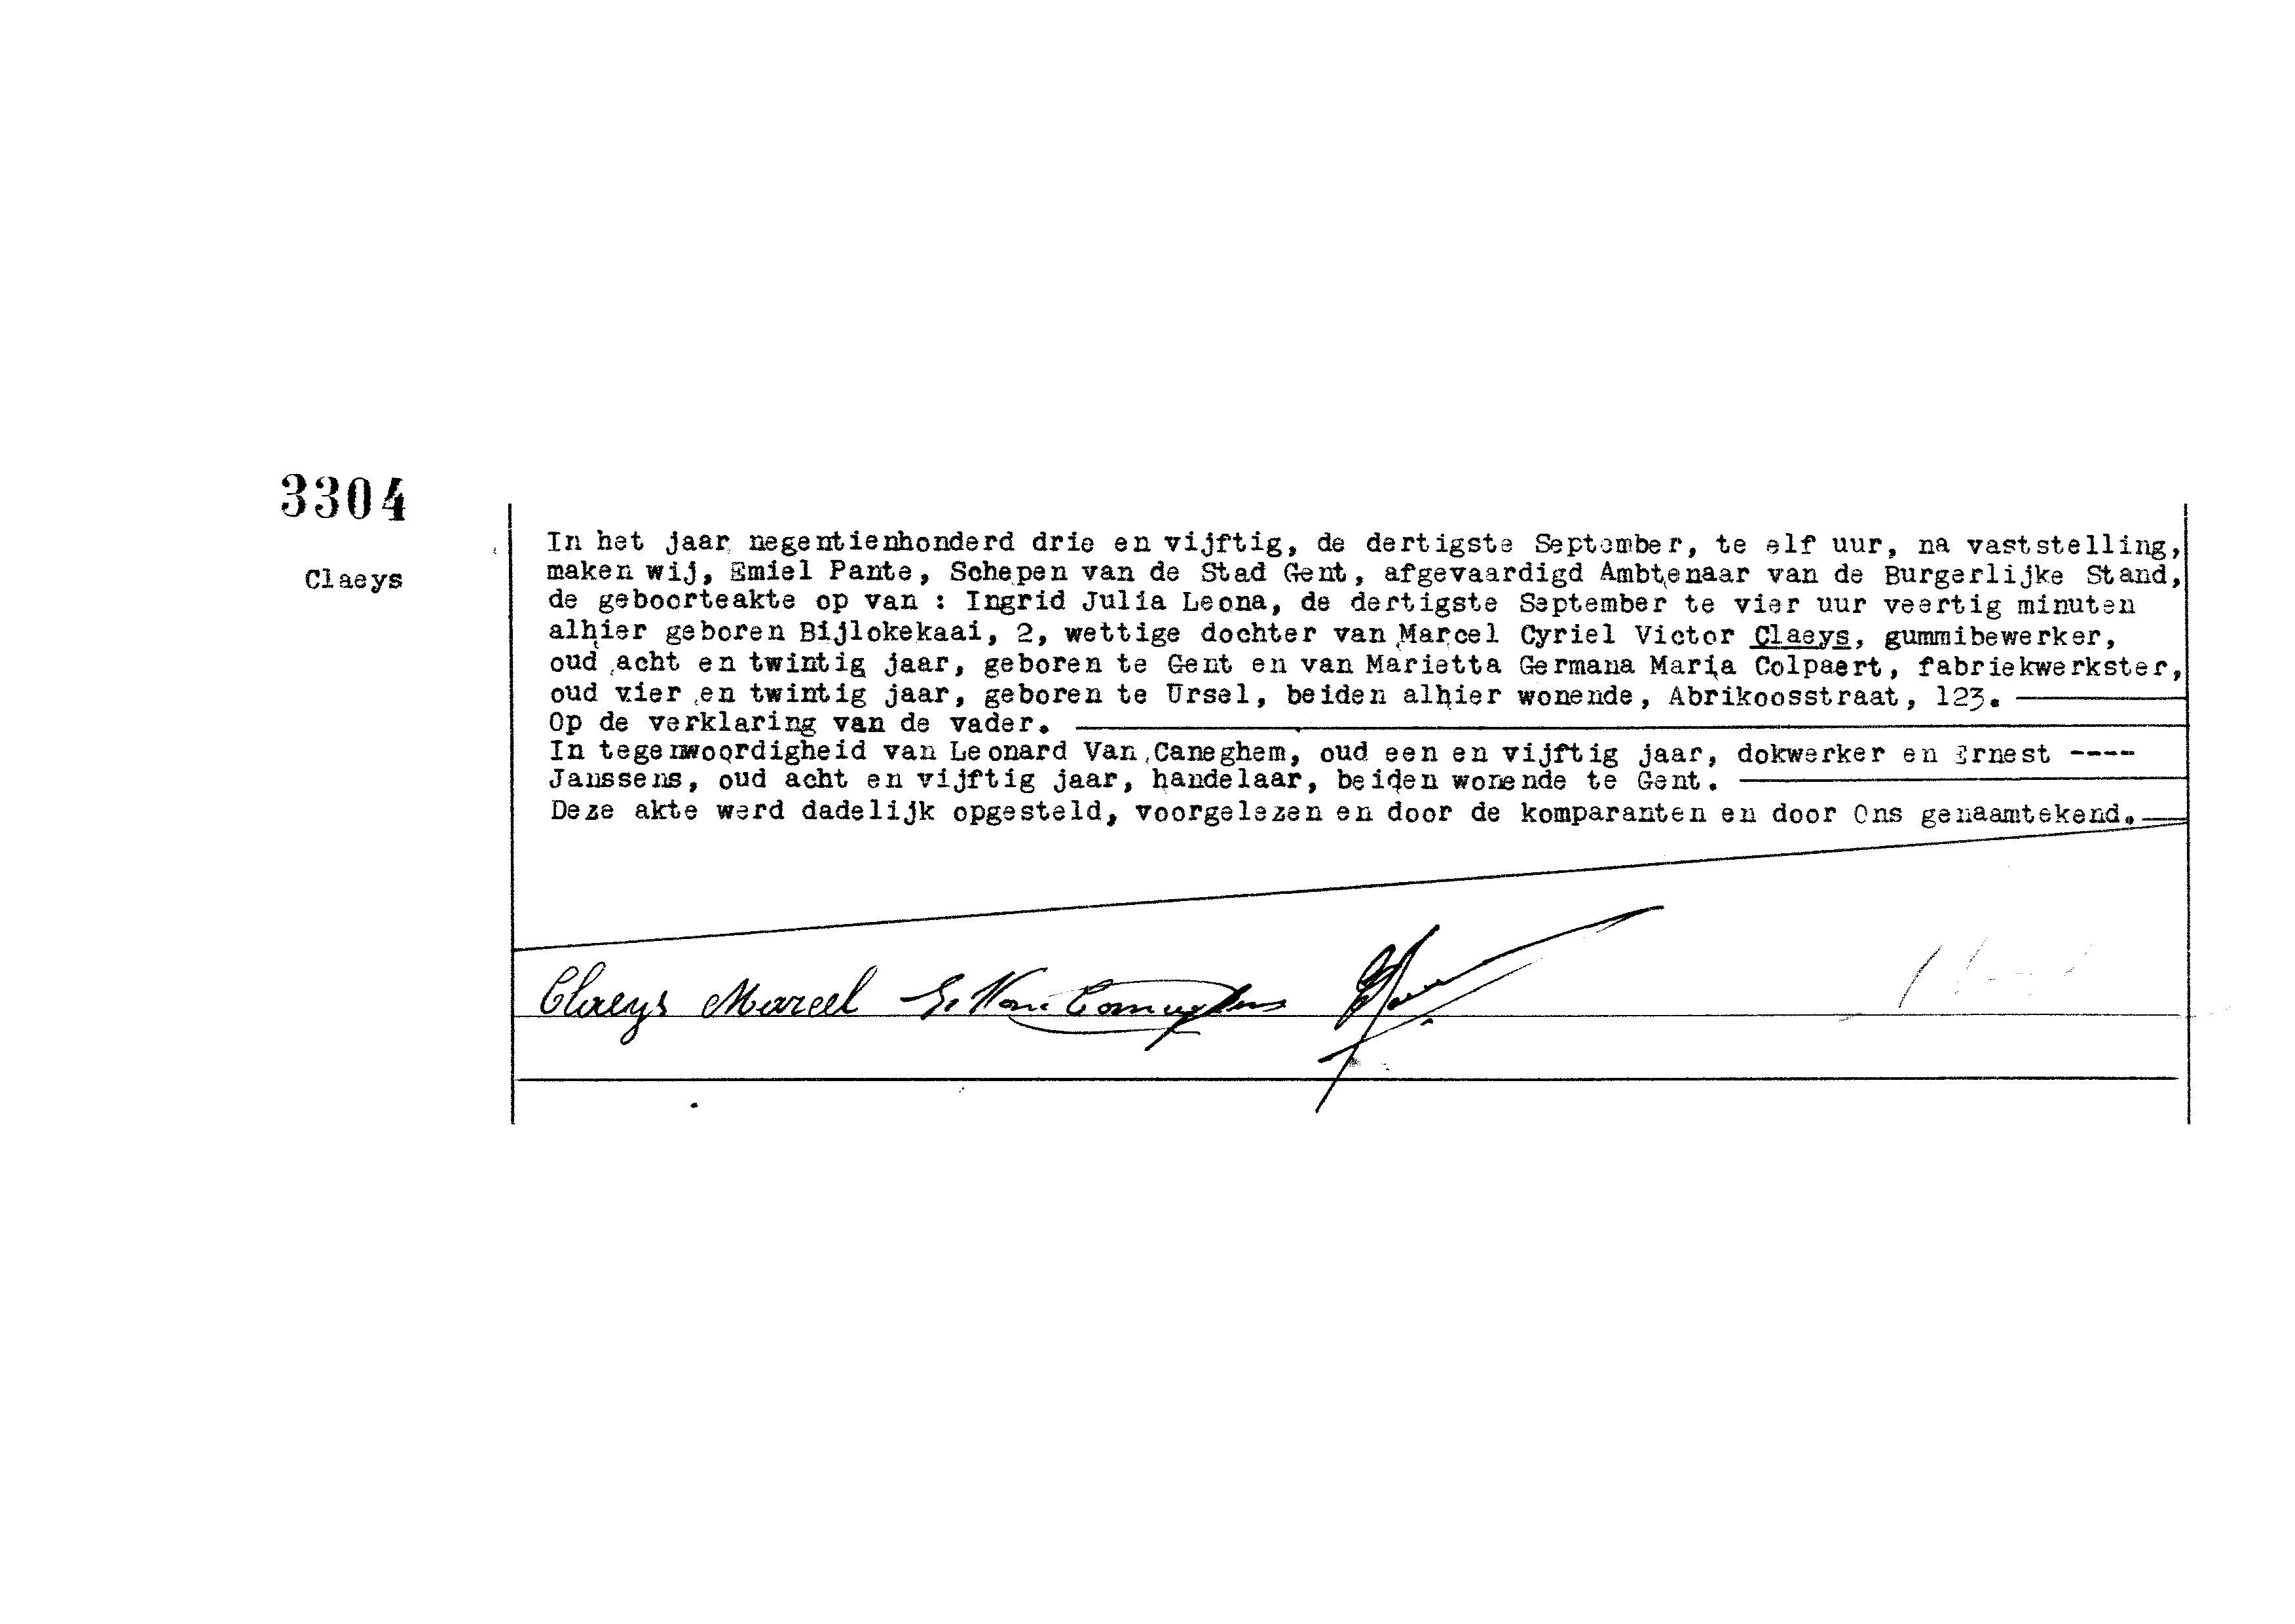 3304
Claeys
In het jaar negentienhonderd drie en vijftig, de dertigste September, te elf uur, na vaststelling,
maken wij, Emiel Pante, Schepen van de Stad Gent, afgevaardigd Ambtenaar van de Burgerlijke Stand,
de geboorteakte op van : Ingrid Julia Leona, de dertigste September te vier uur veertig minuten
alhier geboren Bijlokekaai, 2, wettige dochter van Marcel Cyriel Victor Claeys, gummibewerker,
oud acht en twintig jaar, geboren te Gent en van Marietta Germana Maria Colpaert, fabriekwerkster,
oud vier en twintig jaar, geboren te Ursel, beiden alhier wonende, Abrikoosstraat, 123.
Op de verklaring van de vader.
In tegenwoordigheid van Leonard Van Caneghem, oud een en vijftig jaar, dokwerker en Ernest ----
Janssens, oud acht en vijftig jaar, handelaar, beiden wonende te Gent.
Deze akte werd dadelijk opgesteld, voorgelezen en door de komparanten en door Ons genaamtekend.
Claeys Marcel